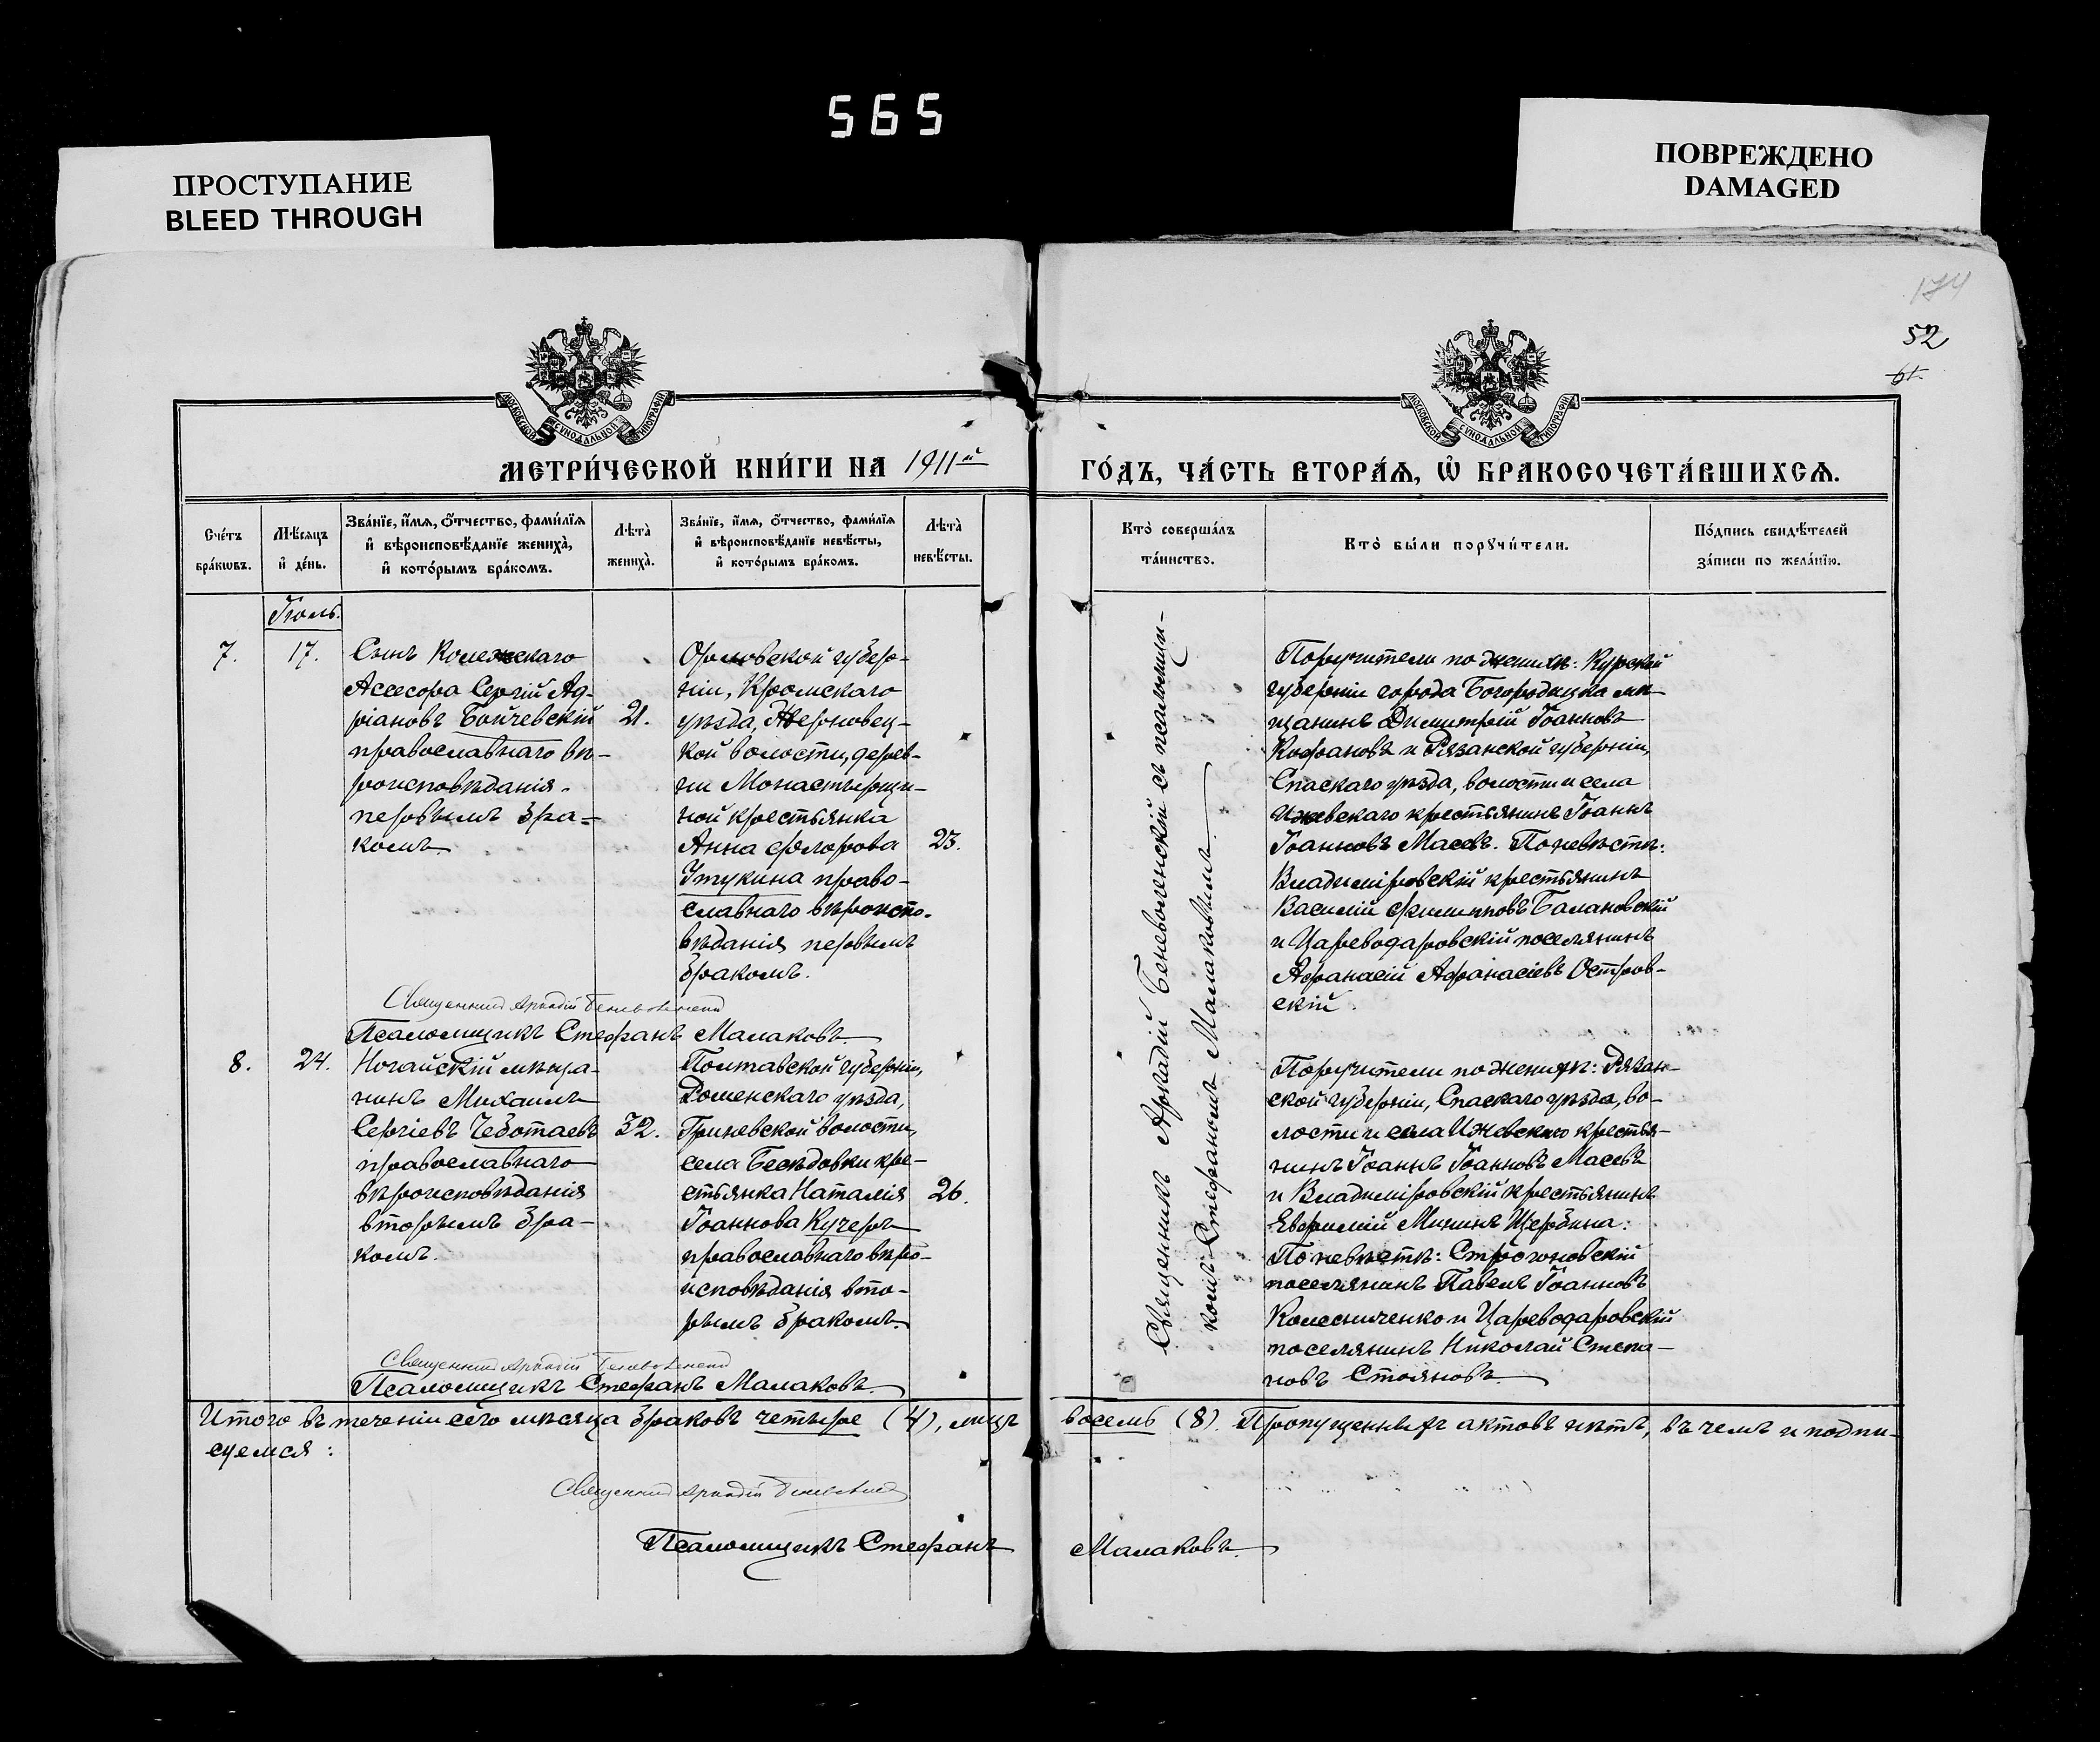 565
ПРОСТУПАНИЕ
BLEED THROUGH
ПОВРЕЖДЕНО
DAMAGED
174
52
61.
МОСКОВСКОЙ СѴНОДАЛЬНОЙ ТИПОГРАФІИ
МОСКОВСКОЙ СѴНОДАЛЬНОЙ ТИПОГРАФІИ
МЕТРИ́ЧЕСКОЙ КНИ́ГИ НА 1911й
ГО́ДЪ, ЧА́СТЬ ВТОРА́Ѧ, Ѡ҆ БРАКОСОЧЕТА́ВШИХСѦ.
Сче́тъ
бра́кѡвъ.
Мѣ́сѧцъ
и҆ де́нь.
Зва́нїе, и҆́мѧ, ѻ҆́тчество, фами́лїѧ
и҆ вѣроисповѣ́данїе жениха̀,
и҆ кото́рымъ бра́комъ.
Лѣта̀
жениха̀.
Зва́нїе, и҆́мѧ, ѻ҆́тчество, фами́лїѧ
и҆ вѣроисповѣ́данїе невѣ́сты,
и҆ кото́рымъ бра́комъ.
Лѣта̀
невѣ́сты.
Кто̀ соверша́лъ
та́инство.
Кто̀ бы́ли порꙋчи́тели.
По́дпись свидѣ́телей
за́писи по жела́нїю.
Іюль.
7.
17.
Сынъ Колежскаго
Ассесора Сергій Ад-
ріановъ Бойчевскій
православнаго вѣ-
роисповѣданія.
первымъ бра-
комъ.
21.
Орловской губер-
ніи, Кромскаго
уѣзда, Жерновец-
кой волости, дерев-
ни Монастырщи-
ной крестьянка
Анна Ѳедорова
Утукина право-
славнаго вѣроиспо-
вѣданія первымъ
бракомъ.
23.
Священникъ Аркадій Беневоленскій
Псаломщикъ Стефанъ Малаковъ.
Священникъ Аркадій Беневоленскій съ псаломщи-
комъ Стефаномъ Малаковымъ.
Поручители по женихѣ: Курской
губерніи города Богородицка мѣ-
щанинъ Димитрій Іоанновъ
Кофановъ и Рязанской губерніи,
Спаскаго уѣзда, волости и села
Ижевскаго крестьянинъ Іоаннъ
Іоанновъ Масевъ. По невѣстѣ:
Владиміровскій крестьянинъ
Василій Филипповъ Балановскій
и Цареводаровскій поселянинъ
Афанасій Афанасіевъ Остров-
скій.
8.
24.
Ногайскій мѣща-
нинъ Михаилъ
Сергіевъ Чеботаевъ
православнаго
вѣроисповѣданія
вторымъ бра-
комъ.
32.
Полтавской губерніи,
Роменскаго уѣзда,
Гриневской волости,
села Бесѣдовки кре-
стьянка Наталія
Іоаннова Кучеръ
православнаго вѣро-
исповѣданія вто-
рымъ бракомъ.
26.
Священникъ Аркадій Беневоленскій
Псаломщикъ Стефанъ Малаковъ.
Поручители по женихѣ: Рязан-
ской губерніи, Спаскаго уѣзда, во-
лости и села Ижевскаго крестья-
нинъ Іоаннъ Іоанновъ Масевъ
и Владиміровскій крестьянинъ
Евфимій Мининъ Щербина.
По невѣстѣ: Строгоновскій
поселянинъ Павелъ Іоанновъ
Колесниченко и Цареводаровскій
поселянинъ Николай Степа-
новъ Стояновъ.
Итого въ теченіи сего мѣсяца браковъ четыре (4), лицъ восемь (8). Пропущенныхъ актовъ нѣтъ, въ чемъ и подпи-
суемся:
Священникъ Аркадій Беневоленскій
Псаломщикъ Стефанъ Малаковъ.